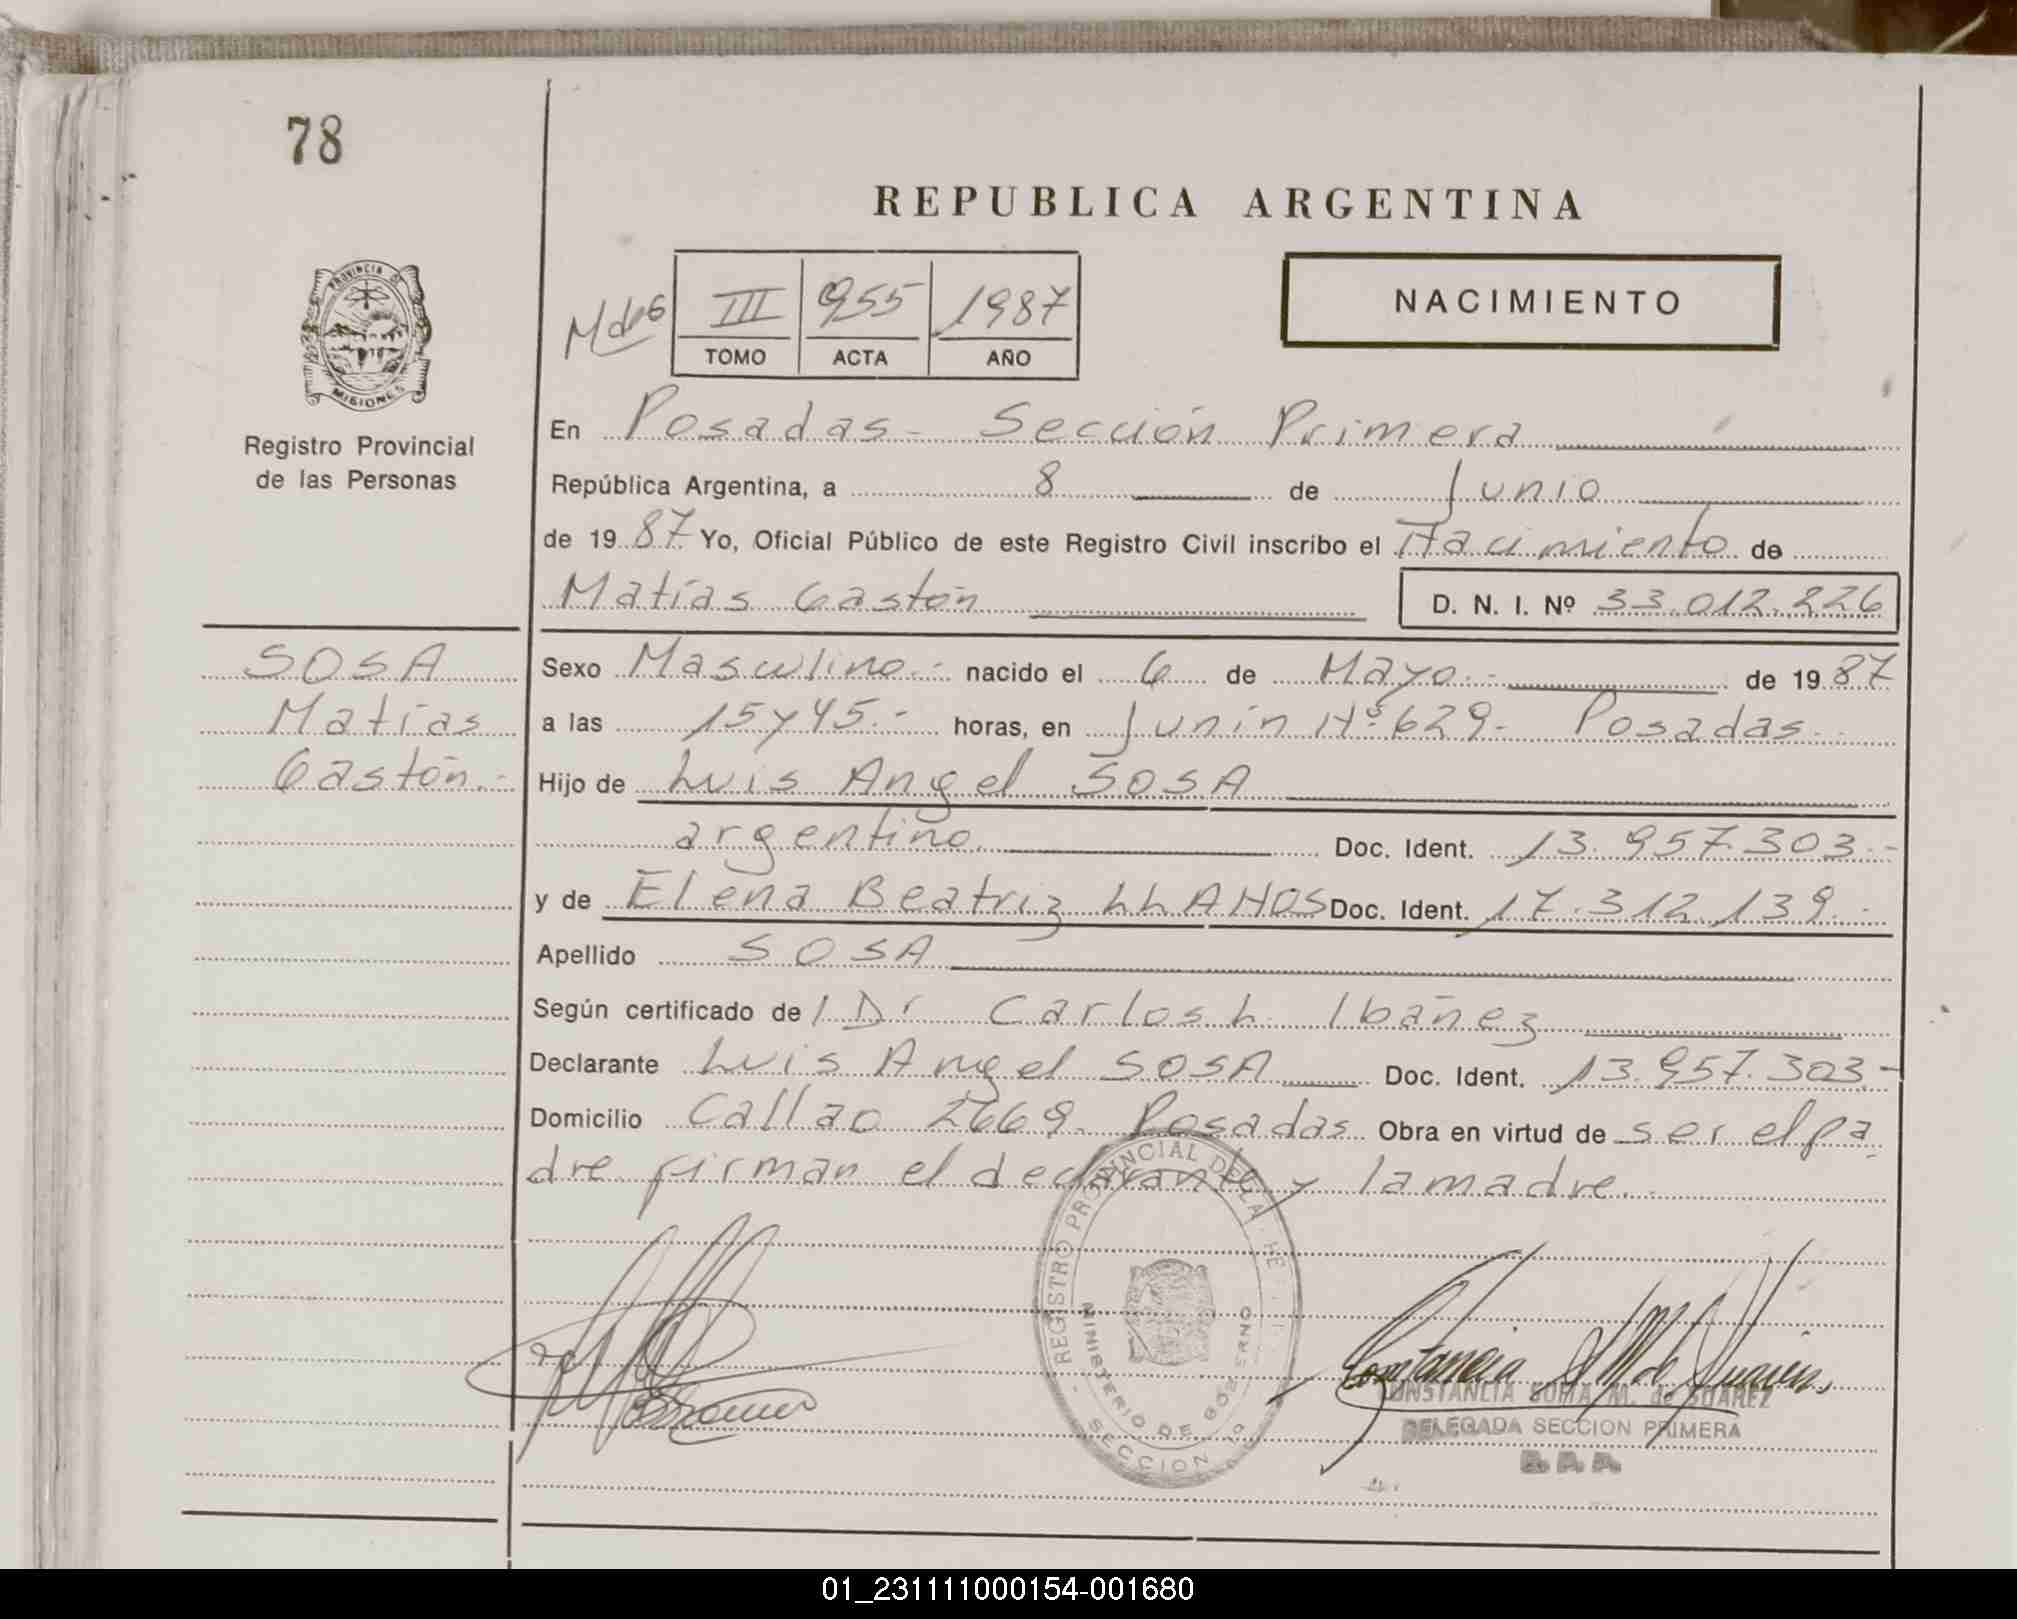 78
REPUBLICA ARGENTINA
PROVINCIA D
MISIONES
Registro Provincial
de las Personas
III 955 1987
TOMO ACTA AÑO
NACIMIENTO
En Posadas - Sección Primera
República Argentina, a 8 de Junio
de 1987 Yo, Oficial Público de este Registro Civil inscribo el Nacimiento de
Matías Gastón D. N. I. Nº 33.012.226
SOSA
Matías
Gastón.-
Sexo Masculino.- nacido el 6 de Mayo.- de 1987
a las 15 y 45.- horas, en Junín Nº 629- Posadas.-
Hijo de Luis Angel SOSA
argentino. Doc. Ident. 13.957.303.-
y de Elena Beatriz LLANOS Doc. Ident. 17.312.139.-
Apellido SOSA
Según certificado del Dr Carlos L. Ibáñez
Declarante Luis Angel SOSA Doc. Ident. 13.957.303.-
Domicilio Callao 2669. Posadas Obra en virtud de ser el pa
dre firman el declarante y la madre.
REGISTRO PROVINCIAL DE LA
MINISTERIO DE GOBIERNO
SECCION 1º
CONSTANCIA SOFIA M. de SUAREZ
DELEGADA SECCION PRIMERA
01_231111000154-001680